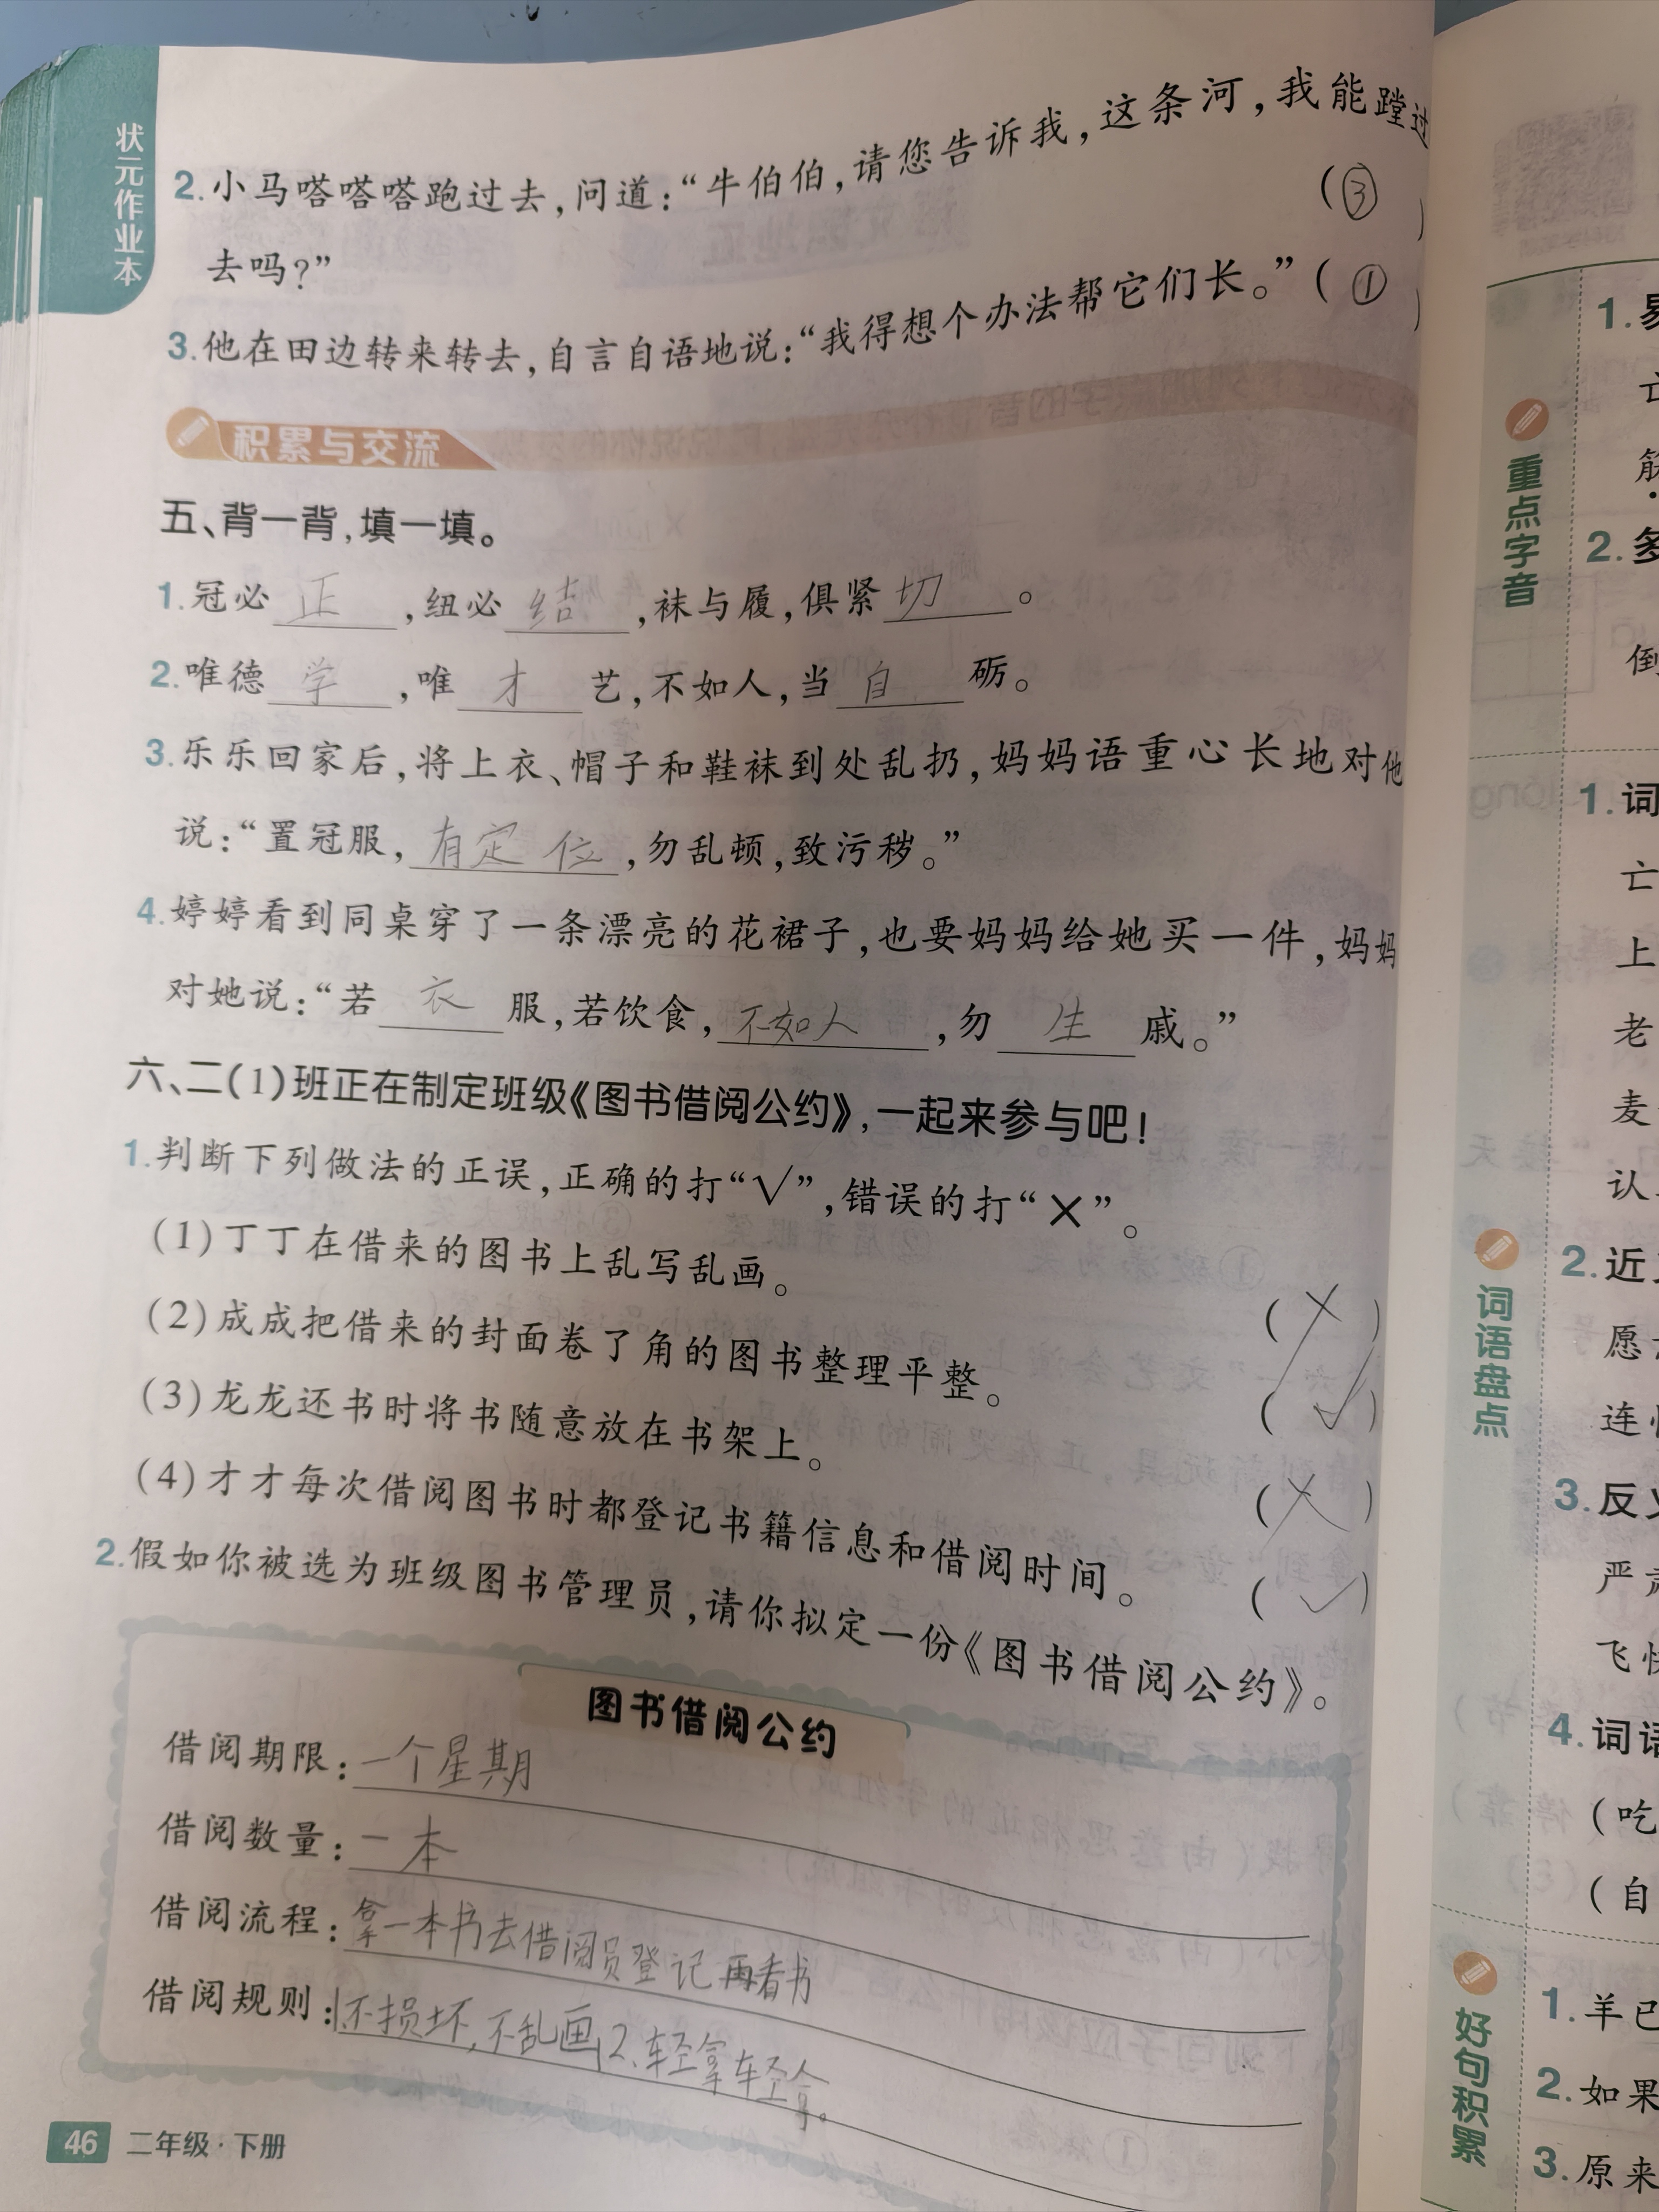 状元作业本
2.小马嗒嗒嗒跑过去,问道:“牛伯伯,请您告诉我,这条河,我能蹚过
去吗?” (③)
3.他在田边转来转去,自言自语地说:“我得想个办法帮它们长。”(①)
积累与交流
五、背一背,填一填。
1.冠必正,纽必结,袜与履,俱紧切。
2.唯德学,唯才艺,不如人,当自砺。
3.乐乐回家后,将上衣、帽子和鞋袜到处乱扔,妈妈语重心长地对他
说:“置冠服,有定位,勿乱顿,致污秽。”
4.婷婷看到同桌穿了一条漂亮的花裙子,也要妈妈给她买一件,妈妈
对她说:“若衣服,若饮食,不如人,勿生戚。”
六、二(1)班正在制定班级《图书借阅公约》,一起来参与吧!
1.判断下列做法的正误,正确的打“√”,错误的打“×”。
(1)丁丁在借来的图书上乱写乱画。 (×)
(2)成成把借来的封面卷了角的图书整理平整。 (√)
(3)龙龙还书时将书随意放在书架上。 (×)
(4)才才每次借阅图书时都登记书籍信息和借阅时间。 (√)
2.假如你被选为班级图书管理员,请你拟定一份《图书借阅公约》。
图书借阅公约
借阅期限:一个星期
借阅数量:一本
借阅流程:拿一本书去借阅员登记再看书
借阅规则:1不损坏,不乱画,2、轻拿轻拿。
46 二年级·下册
重点字音
1.易
亡
筋
2.多
倒
词语盘点
1.词
亡
上
老
麦
认
2.近义
愿
连
3.反义
严肃
飞快
4.词语
(吃
(自
好句积累
1.羊已
2.如果
3.原来